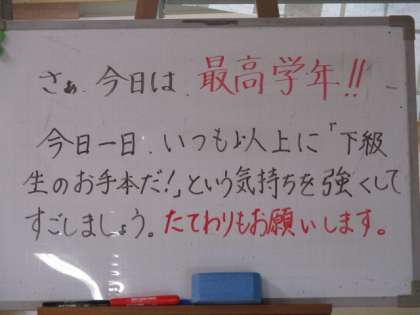 さぁ、今日は、最高学年!!
今日一日、いつも以上に「下級
生のお手本だ!」という気持ちを強くして
すごしましょう。たてわりもお願いします。